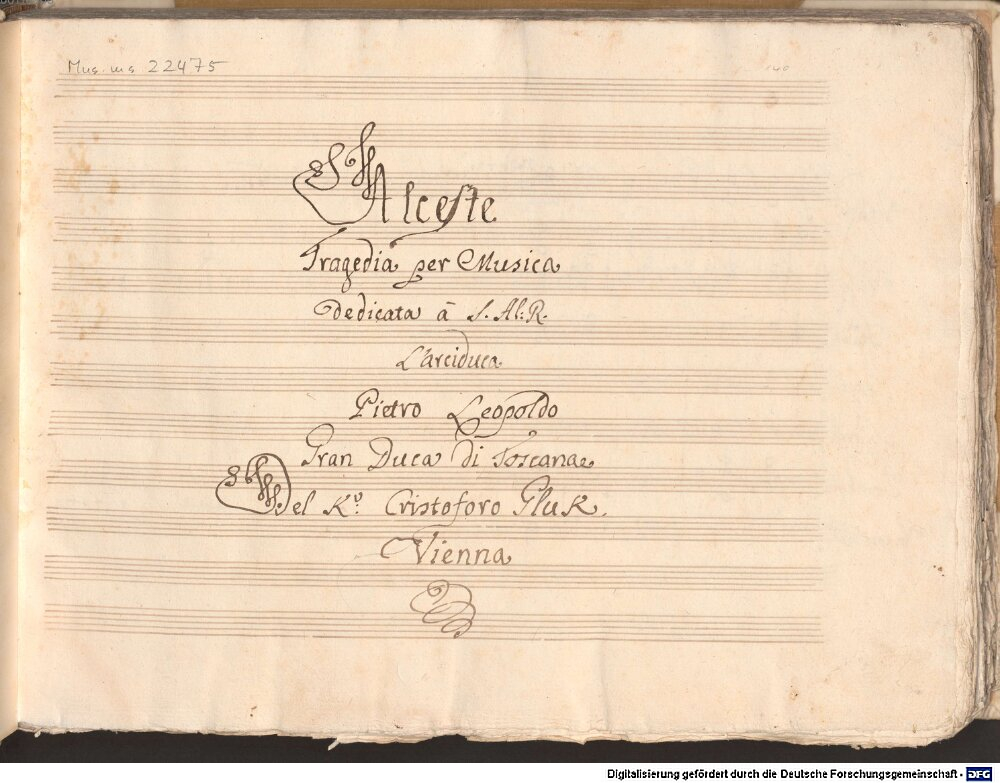 Mus. ms 22475
Alceste
Tragedia per Musica
Dedicata à S. Al: R.
L'arciduca
Pietro Leopoldo
Gran Duca di Toscana
Del K.º Cristoforo Gluk.
Vienna
Digitalisierung gefördert durch die Deutsche Forschungsgemeinschaft - DFG